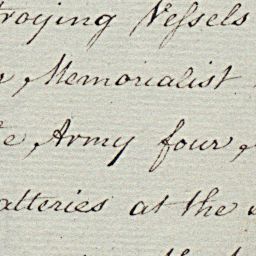 troying Veſsels
Memorialist
Army four,
atteries at the